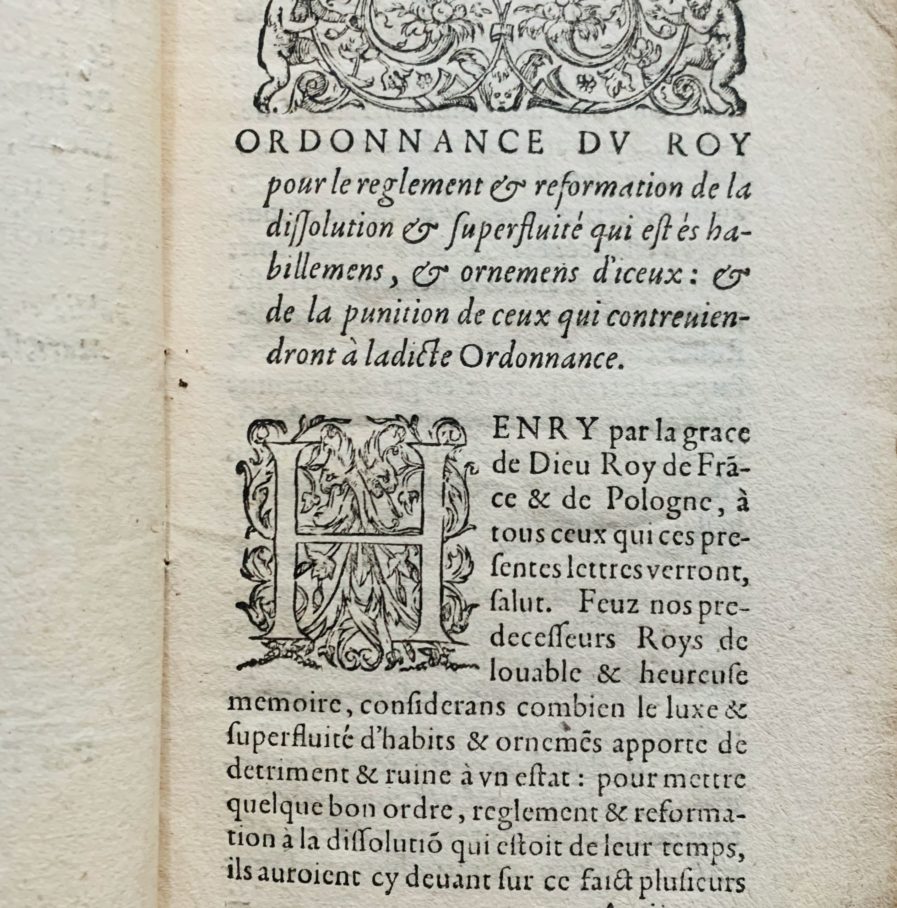 ORDONNANCE DV ROY
pour le reglement & reformation de la
diſſolution & ſuperfluité qui eſt és ha-
billemens, & ornemens d'iceux: &
de la punition de ceux qui contreuien-
dront à ladicte Ordonnance.
HENRY par la grace
de Dieu Roy de Frã-
ce & de Pologne, à
tous ceux qui ces pre-
ſentes lettres verront,
ſalut. Feuz nos pre-
deceſſeurs Roys de
louable & heureuſe
memoire, conſiderans combien le luxe &
ſuperfluité d'habits & ornemẽs apporte de
detriment & ruine à vn eſtat: pour mettre
quelque bon ordre, reglement & reforma-
tion à la diſſolutiõ qui eſtoit de leur temps,
ils auroient cy deuant ſur ce faict pluſieurs